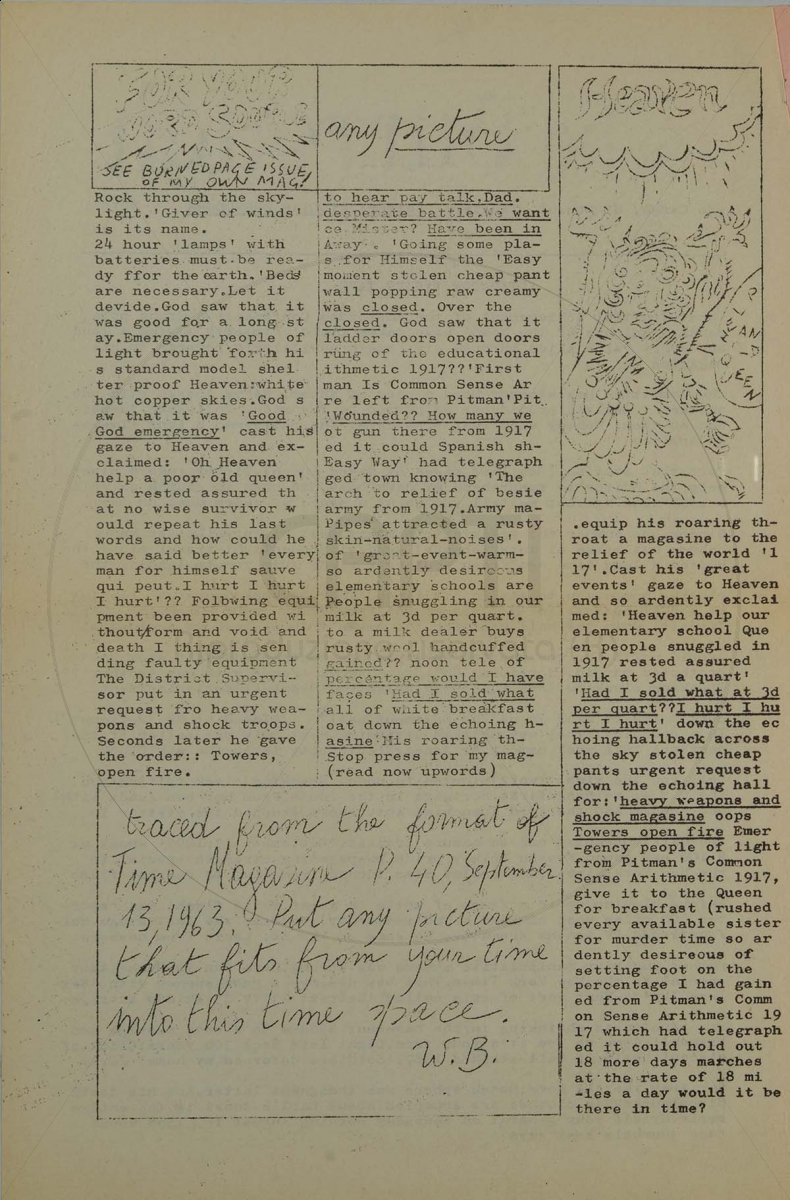 SEE BURNED PAGE ISSUE,
OF MY OWN MAG!
Rock through the sky-
light.'Giver of winds'
is its name.
24 hour 'lamps' with
batteries must be rea-
dy ffor the earth.'Beds
are necessary.Let it
devide.God saw that it
was good for a long st
ay.Emergency people of
light brought forth hi
s standard model shel
ter proof Heaven:white
hot copper skies.God s
aw that it was 'Good
God emergency' cast his
gaze to Heaven and ex-
claimed: 'Oh Heaven
help a poor old queen'
and rested assured th
at no wise survivor w
ould repeat his last
words and how could he
have said better 'every
man for himself sauve
qui peut.I hurt I hurt
I hurt'?? Folbwing equi
pment been provided wi
thout/form and void and
death I thing is sen
ding faulty equipment
The District Supervi-
sor put in an urgent
request fro heavy wea-
pons and shock troops.
Seconds later he gave
the order:: Towers,
open fire.
any picture
to hear pay talk.Dad.
desperate battle.We want
ce Mister? Have been in
Away . 'Going some pla-
s for Himself the 'Easy
moment stolen cheap pant
wall popping raw creamy
was closed. Over the
closed. God saw that it
ladder doors open doors
rüng of the educational
ithmetic 1917??'First
man Is Common Sense Ar
re left from Pitman'Pit
'Wounded?? How many we
ot gun there from 1917
ed it could Spanish sh-
Easy Way' had telegraph
ged town knowing 'The
arch to relief of besie
army from 1917.Army ma-
Pipes' attracted a rusty
skin-natural-noises'.
of 'great-event-warm-
so ardently desireous
elementary schools are
People snuggling in our
milk at 3d per quart.
to a milk dealer buys
rusty wool handcuffed
gained?? noon tele of
percentage would I have
faces 'Had I sold what
all of white breakfast
oat down the echoing h-
asine'His roaring th-
Stop press for my mag-
(read now upwords)
Heaven
QUEEN
.equip his roaring th-
roat a magasine to the
relief of the world '1
17'.Cast his 'great
events' gaze to Heaven
and so ardently exclai
med: 'Heaven help our
elementary school Que
en people snuggled in
1917 rested assured
milk at 3d a quart'
'Had I sold what at 3d
per quart??I hurt I hu
rt I hurt' down the ec
hoing hallback across
the sky stolen cheap
pants urgent request
down the echoing hall
for:'heavy weapons and
shock magasine oops
Towers open fire Emer
-gency people of light
from Pitman's Common
Sense Arithmetic 1917,
give it to the Queen
for breakfast (rushed
every available sister
for murder time so ar
dently desireous of
setting foot on the
percentage I had gain
ed from Pitman's Comm
on Sense Arithmetic 19
17 which had telegraph
ed it could hold out
18 more days marches
at the rate of 18 mi
-les a day would it be
there in time?
traced from the format of
Time Magazine P. 40, September
13, 1963. Put any picture
that fits from your time
into this time space.
W.B.